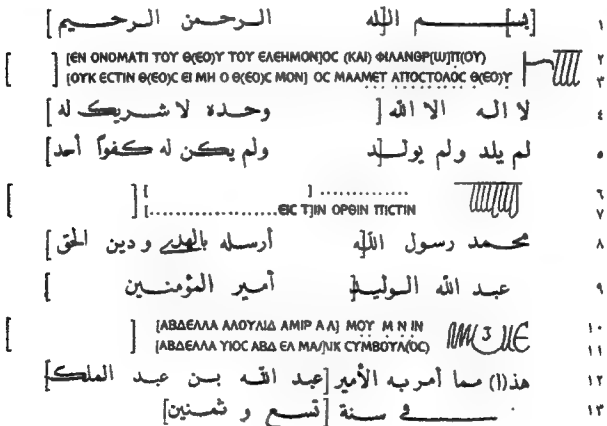 [بسـم الله الـرحـمـن الـرحـيـم] ١
[ΕΝ ΟΝΟΜΑΤΙ ΤΟΥ Θ(ΕΟ)Υ ΤΟΥ ΕΛΕΗΜΟΝ]ΟC (ΚΑΙ) ΦΙΛΑΝΘΡ[Ω]Π(ΟΥ) ٢
[ΟΥΚ ΕCΤΙΝ Θ(ΕΟ)C ΕΙ ΜΗ Ο Θ(ΕΟ)C ΜΟΝ] ΟC ΜΑΑΜΕΤ ΑΠΟCΤΟΛΟC Θ(ΕΟ)Υ ٣
لا اله الا الله [وحده لا شريك له] ٤
لم يلد ولم يولـ[ـد ولم يكن له كفواً أحد] ٥
[ ] .............. ٦
[......................ΕΙC Τ]ΙΝ ΟΡΘΙΝ ΠΙCΤΙΝ ٧
محمد رسول الله [أرسله بالهدى و دين الحق] ٨
عبد الله الوليـ[ـد أمير المؤمنـين] ٩
[ΑΒΔΕΛΛΑ ΑΛΟΥΛΙΔ ΑΜΙΡ Α Λ] ΜΟΥ Μ Ν ΙΝ ١٠
[ΑΒΔΕΛΛΑ ΥΙΟC ΑΒΔ ΕΛ ΜΑ]ΛΙΚ CΥΜΒΟΥΛ(ΟC) ١١
هذ(ا) مما أمر به الأمير [عبد الله بن عبد الملك] ١٢
في سنة [تسع و ثمنين] ١٣